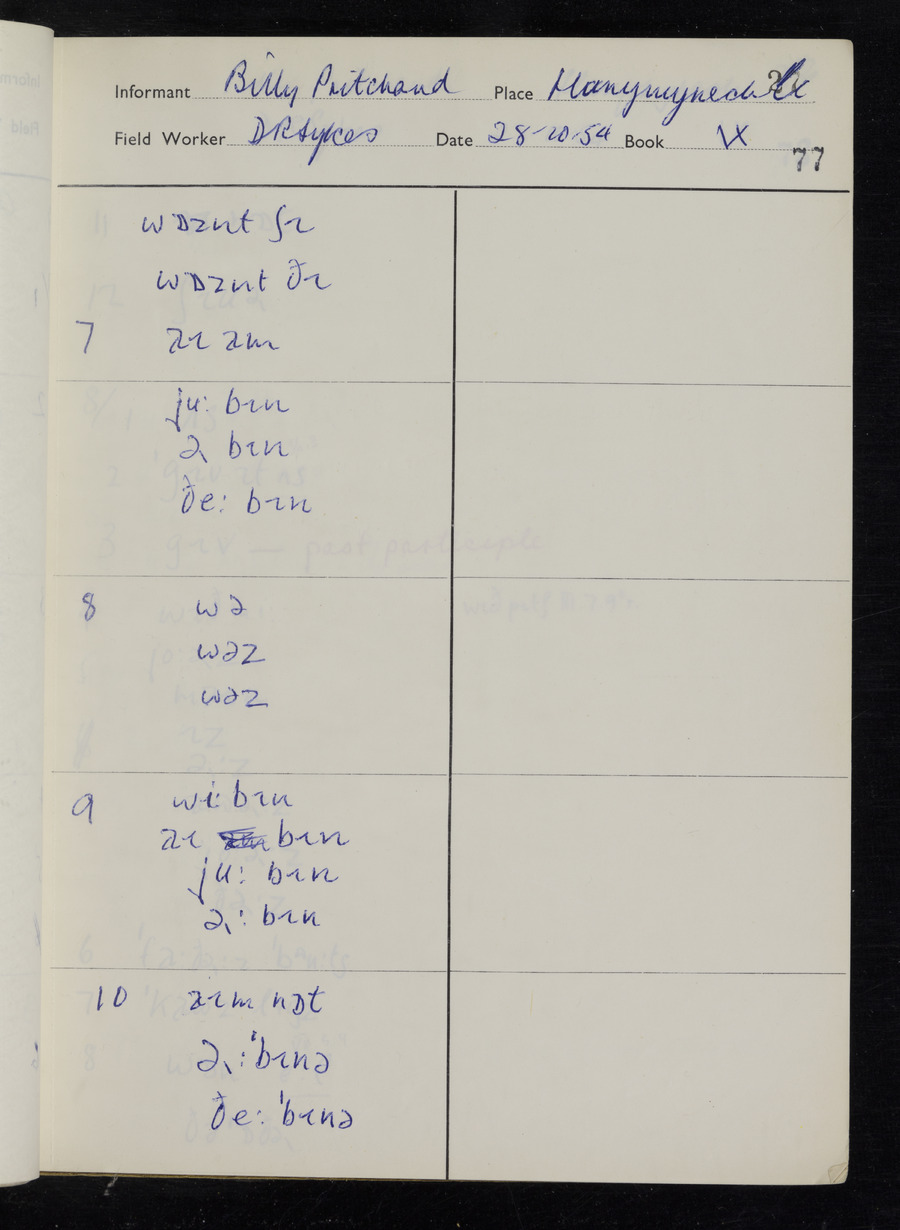 Informant Billy Pritchard Place Llanymynech
Field Worker D R Sykes Date 28-10-54 Book IX
77
wɒznt ʃɪ
wɒznt ðɪ
7 aɪ am
ju: bɪn
ə bɪn
ðe: bɪn
8 wə
wəz
wəz
9 wi: bɪn
aɪ bɪn
ju: bɪn
ə: bɪn
10 aɪm nɒt
ə: ˈbɪnə
ðe: ˈbɪnə